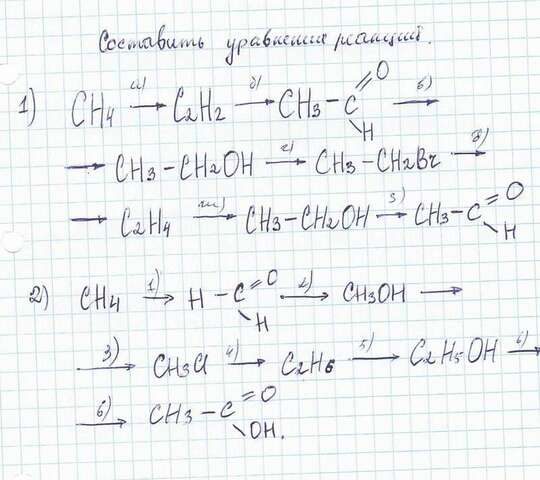 Составить уравнения реакций.
1) CH4 а)→ C2H2 б)→ CH3-C=O H в)→
→ CH3-CH2OH г)→ CH3-CH2Br д)→
→ C2H4 ж)→ CH3-CH2OH з)→ CH3-C=O H
2) CH4 1)→ H-C=O H 2)→ CH3OH →
3)→ CH3Cl 4)→ C2H6 5)→ C2H5OH 6)→
6)→ CH3-C=O OH.